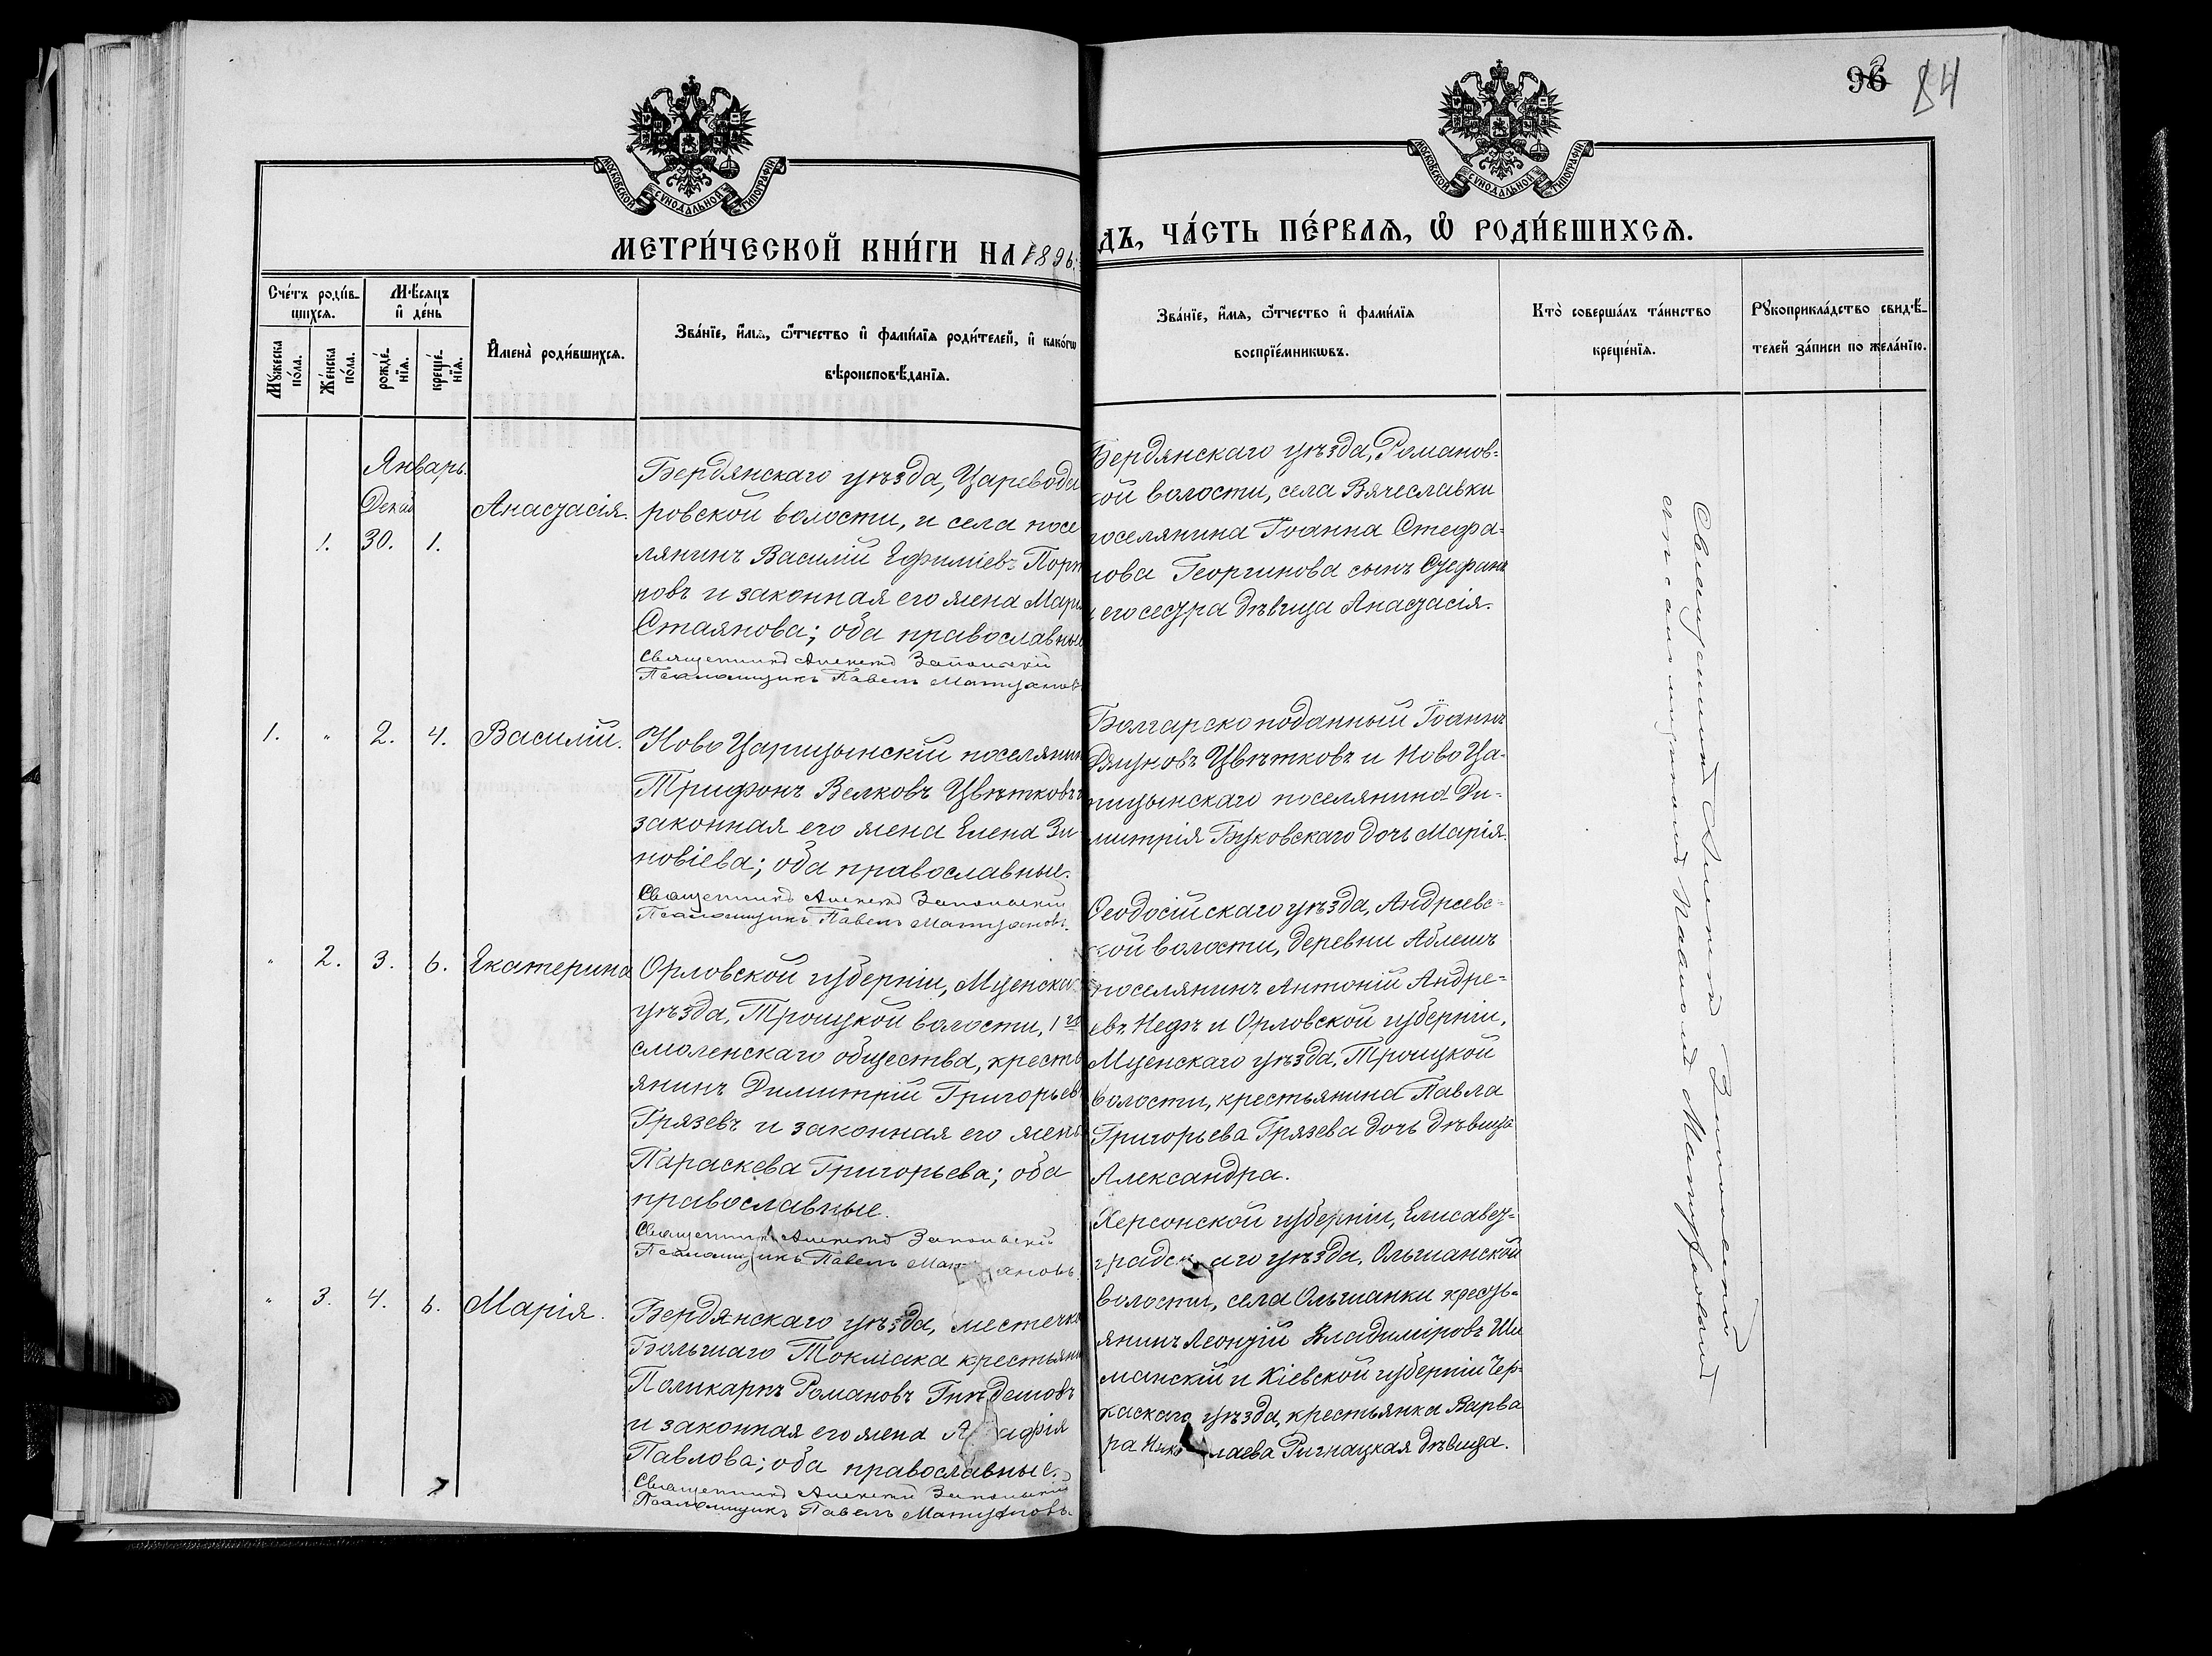 96 84
МОСКОВСКОЙ СѴНОДАЛЬНОЙ ТИПОГРАФІИ
МОСКОВСКОЙ СѴНОДАЛЬНОЙ ТИПОГРАФІИ
МЕТРИ́ЧЕСКОЙ КНИ́ГИ НА 1896.
ДЪ, ЧА́СТЬ ПЕ́РВАѦ, Ѽ РОДИ́ВШИХСѦ.
Сче́тъ роди́в-
шихсѧ.
Мꙋ́жеска по́ла.
Же́нска по́ла.
Мѣ́сѧцъ и҆ де́нь
рожде́-
нїѧ.
креще́-
нїѧ.
И҆мена̀ роди́вшихсѧ.
Зва́нїе, и҆́мѧ, ѻ҆́тчество и҆ фами́лїѧ роди́телей, и҆ како́гѡ
вѣроисповѣ́данїѧ.
Зва́нїе, и҆́мѧ, ѻ҆́тчество и҆ фами́лїѧ
воспрїе́мникѡвъ.
Кто̀ соверша́лъ та́инство
креще́нїѧ.
Рꙋкоприкла́дство свидѣ́-
телей за́писи по жела́нїю.
Январь.
Декаб
1. 30. 1.
Анастасія.
Бердянскаго уѣзда, Царевода
ровской волости, и села посе
лянинъ Василій Ефиміевъ Порт
новъ и законная его жена Марі
Стаянова; оба православные
Священникъ Алексѣй
Псаломщикъ Павелъ
Бердянскаго уѣзда, Романов-
кой волости, села Вячеславки
поселянина Іоанна Стефа-
нова Георгинова сынъ Стефанъ
и его сестра дѣвица Анастасія.
1. " 2. 4. Василій.
Ново Царицынскій поселянин
Трифонъ Велковъ Цвѣтковъ и
законная его жена Елена Зи-
новіева; оба православные.
Священникъ Алексѣй
Псаломщикъ Павелъ
Болгарско поданный Іоаннъ
Цвѣтковъ и Ново Ца-
рицынскаго поселянина Ди-
митрія Буковскаго дочь Марія.
" 2. 3. 6. Екатерина
Орловской губерніи, Мценска
уѣзда, Троицкой волости, 1го
смоленскаго общества, кресть
янинъ Димитрій Григорьев
Грязевъ и законная его жена
Параскева Григорьева; оба
православные.
Священникъ Алексѣй
Псаломщикъ Павелъ
Ѳеодосійскаго уѣзда, Андреевс-
кой волости, деревни Аблешъ
поселянинъ Антоній Андре-
евъ Нефъ и Орловской губерніи,
Мценскаго уѣзда, Троицкой
волости, крестьянина Павла
Григорьева Грязева дочь дѣвица
Александра.
" 3. 4. 6. Марія.
Бердянскаго уѣзда, местечка
Большаго Токмака крестьянин
Поликарпъ Романовъ Гнѣдешовъ
и законная его жена Агафія
Павлова; оба православные.
Священникъ Алексѣй
Псаломщикъ Павелъ
Херсонской губерніи, Елисавет-
градскаго уѣзда, Ольшанской
волости, села Ольшанки кресть-
янинъ Леонтій Владиміровъ Ши
манскій и Кіевской губерніи Чер-
каскаго уѣзда, крестьянка Варва
ра Николаева Ригнацкая дѣвица.
Священникъ Алексѣй
съ псаломщикомъ Павломъ